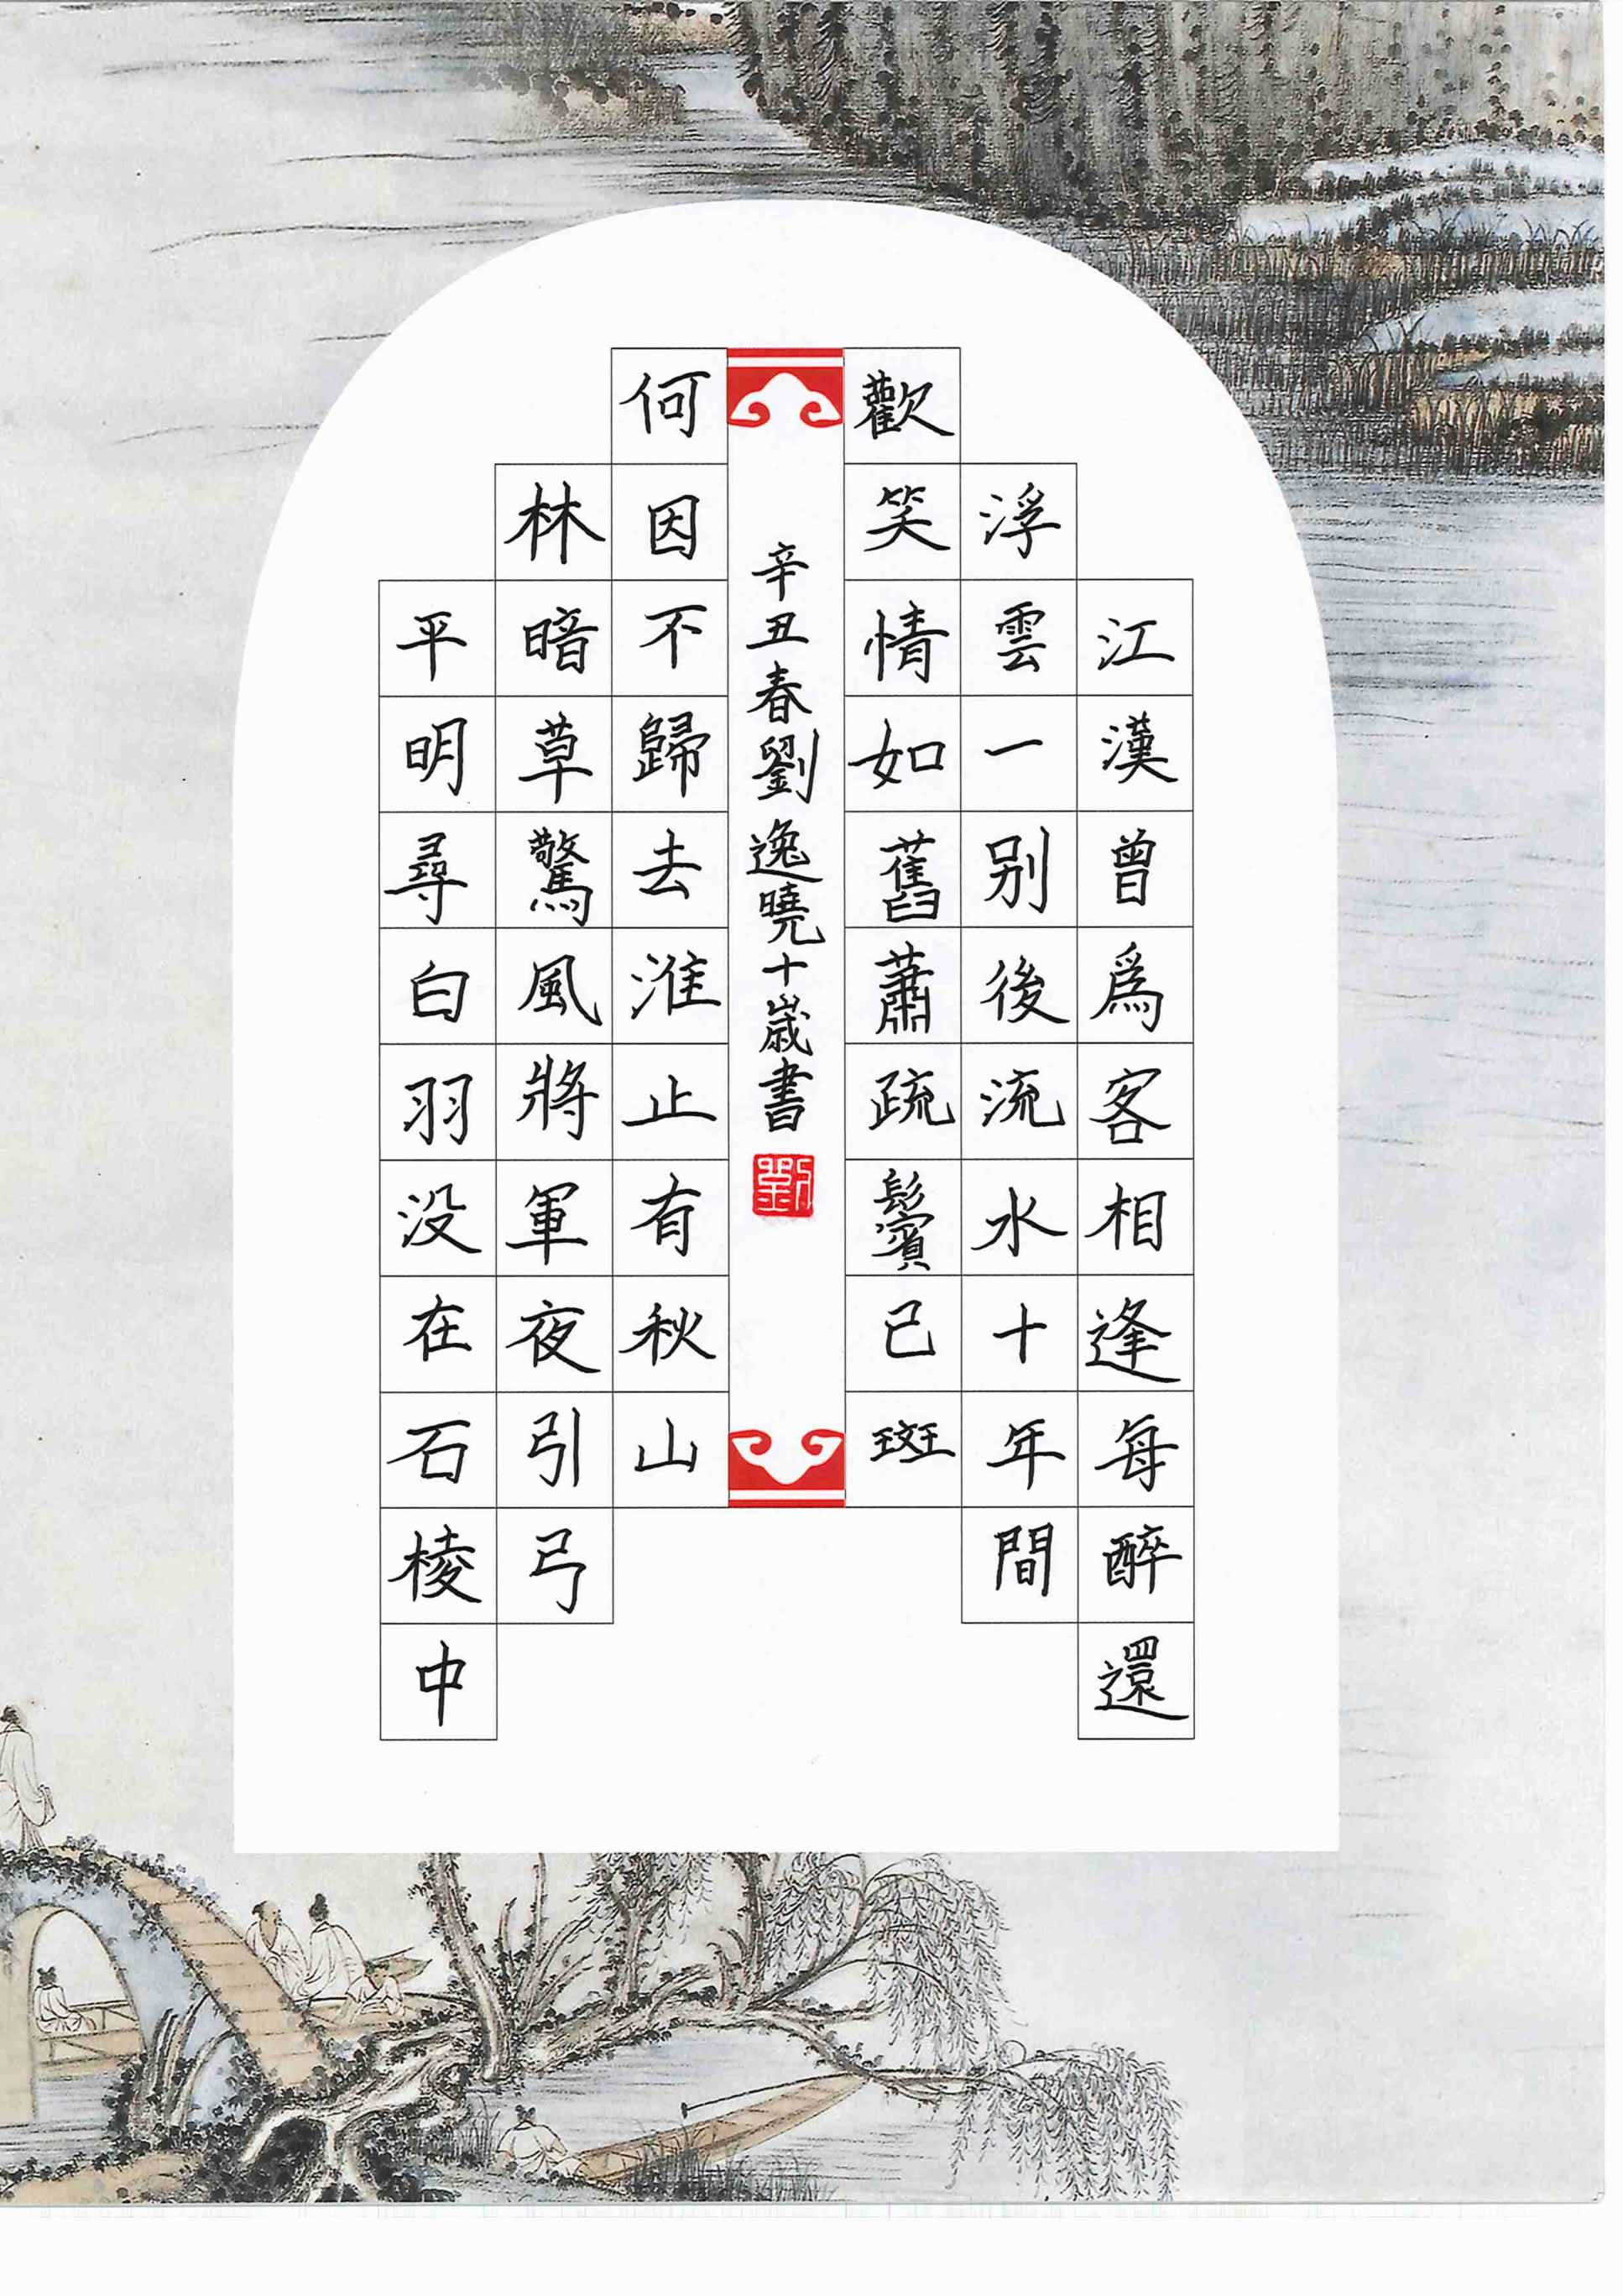 江漢曾爲客相逢每醉還
浮雲一别後流水十年間
歡笑情如舊蕭疏鬢已斑
辛丑春劉逸曉十歲書
劉
何因不歸去淮止有秋山
林暗草驚風將軍夜引弓
平明尋白羽没在石棱中